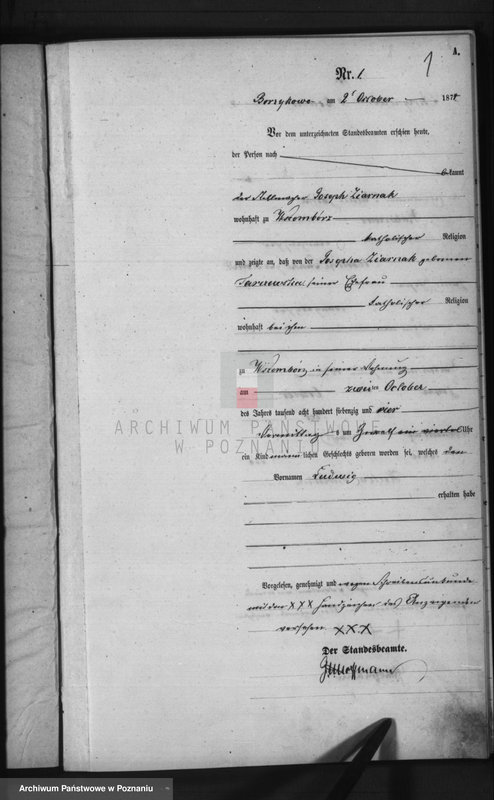 A.
1
Nr. 1
Borzykowo am 2t October 1874
Vor dem unterzeichneten Standesbeamten erschien heute,
der Person nach
kannt
der Stellmacher Joseph Ziarnak
wohnhaft zu Wszembórz
katholischer Religion
und zeigte an, daß von der Josepha Ziarnak geborenen
seiner Ehefrau
katholischer Religion
wohnhaft bei ihm
zu Wszembórz in seiner Wohnung
am zweiten October
des Jahres tausend acht hundert siebenzig und vier
Vormittags um ein viertel Uhr
ein Kind männlichen Geschlechts geboren worden sei, welches den
Vornamen Ludwig
erhalten habe
Vorgelesen, genehmigt und wegen Schreibensunkunde
mit den XXX Handzeichen des Anzeigenden
versehen XXX
Der Standesbeamte.
Hoffmann
ARCHIWUM PAŃSTWOWE
W POZNANIU
Archiwum Państwowe w Poznaniu